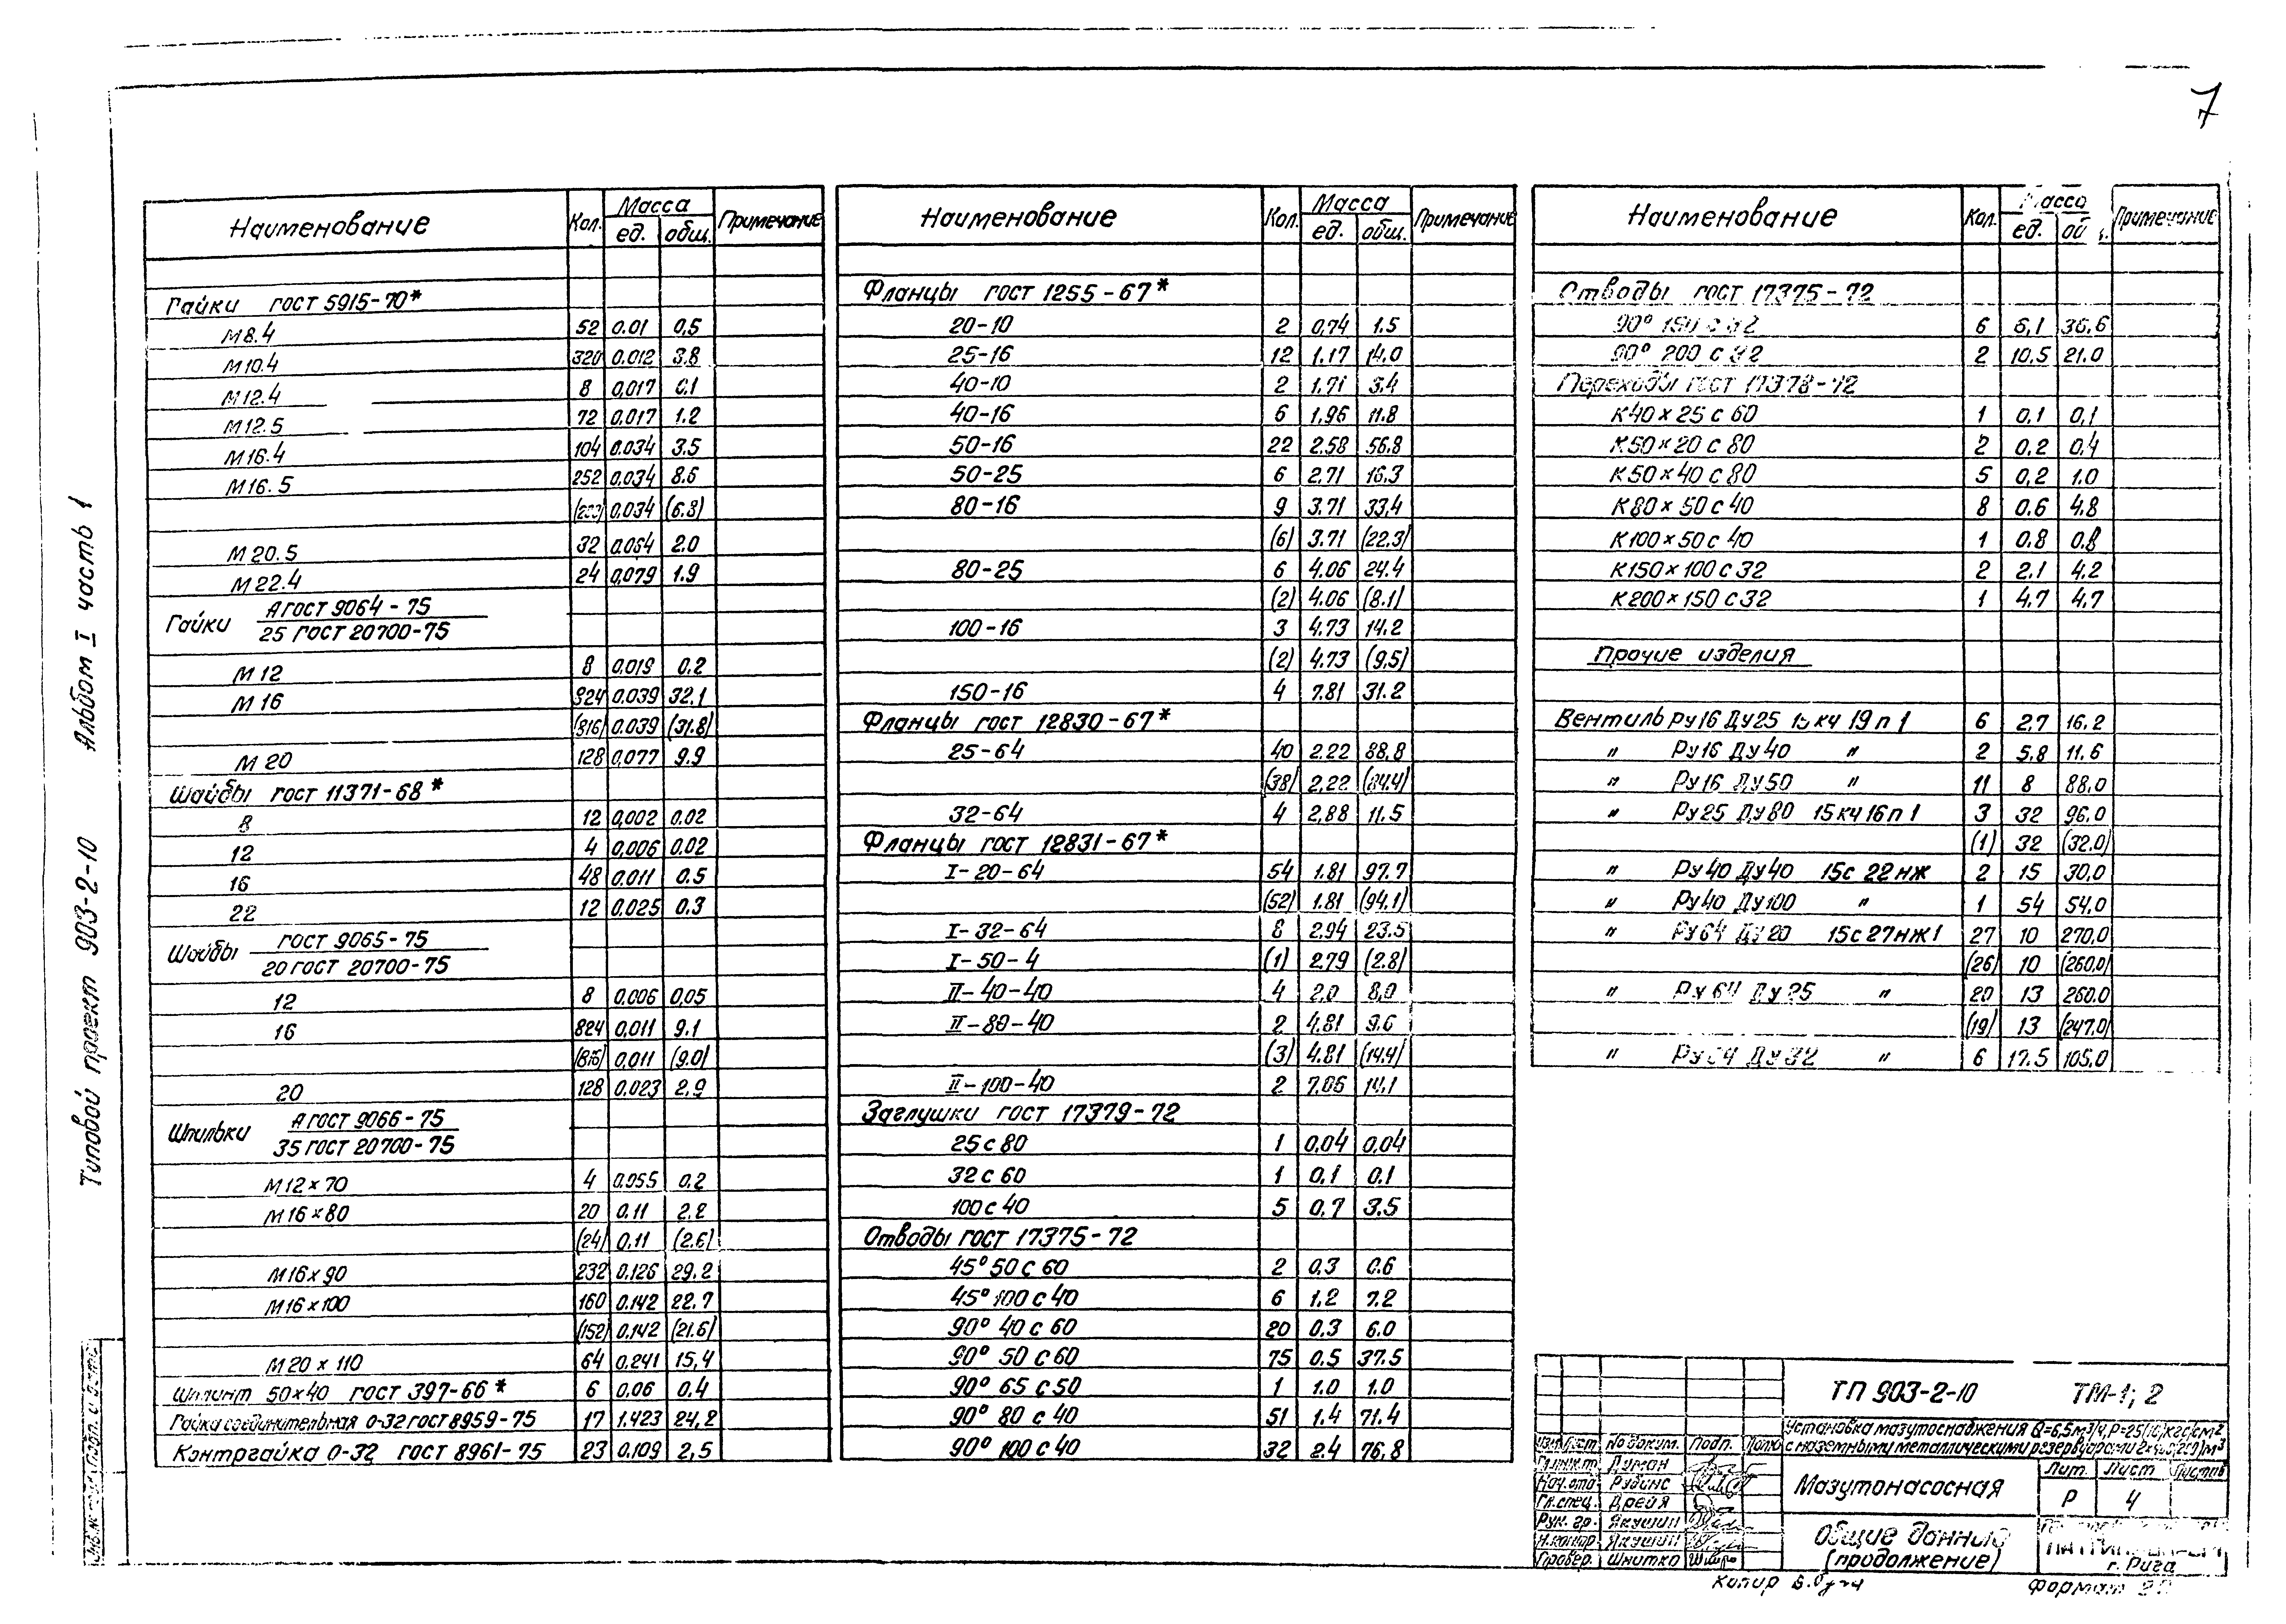 7
Типовой проект 903-2-10 Альбом I часть 1
Наименование Кол. Масса ед. общ. Примечание
Гайки ГОСТ 5915-70*
М8.4 52 0.01 0,5
М10.4 320 0.012 3.8
М12.4 8 0,017 0.1
М12.5 72 0.017 1.2
М16.4 104 0.034 3.5
М16.5 252 0.034 8.6
0.034 (6.8)
М20.5 32 0.064 2.0
М22.4 24 0,079 1.9
Гайки А ГОСТ 9064-75
25 ГОСТ 20700-75
М12 8 0.019 0.2
М16 824 0.039 32,1
(816) 0.039 (31.8)
М20 128 0.077 9.9
Шайбы ГОСТ 11371-68*
8 12 0,002 0.02
12 4 0,006 0.02
16 48 0.011 0.5
22 12 0.025 0.3
Шайбы ГОСТ 9065-75
20 ГОСТ 20700-75
12 8 0.006 0,05
16 824 0.011 9.1
(816) 0,011 (9.0)
20 128 0.023 2,9
Шпильки А ГОСТ 9066-75
35 ГОСТ 20700-75
М12×70 4 0.055 0.2
М16×80 20 0.11 2.2
(24) 0,11 (2.6)
М16×90 232 0.126 29.2
М16×100 160 0.142 22.7
(152) 0.142 (21.6)
М20×110 64 0.241 15,4
Шплинт 50×40 ГОСТ 397-66* 6 0.06 0.4
Гайка соединительная 0-32 ГОСТ 8959-75 17 1.423 24.2
Контргайка 0-32 ГОСТ 8961-75 23 0.109 2,5
Наименование Кол. Масса ед. общ. Примечание
Фланцы ГОСТ 1255-67*
20-10 2 0,74 1.5
25-16 12 1.17 14.0
40-10 2 1.71 3.4
40-16 6 1,96 11.8
50-16 22 2.58 56.8
50-25 6 2.71 16.3
80-16 9 3.71 33,4
(6) 3.71 (22.3)
80-25 6 4.06 24.4
(2) 4.06 (8.1)
100-16 3 4.73 14.2
(2) 4.73 (9.5)
150-16 4 7.81 31.2
Фланцы ГОСТ 12830-67*
25-64 40 2.22 88,8
(38) 2.22 (84.4)
32-64 4 2.88 11.5
Фланцы ГОСТ 12831-67*
I-20-64 54 1.81 97.7
(52) 1.81 (94.1)
I-32-64 8 2.94 23.5
I-50-4 (1) 2.79 (2.8)
II-40-40 4 2.0 8.0
II-80-40 2 4.81 9.6
(3) 4.81 (14.4)
II-100-40 2 7.06 14.1
Заглушки ГОСТ 17379-72
25 с 80 1 0,04 0,04
32 с 60 1 0.1 0.1
100 с 40 5 0.7 3.5
Отводы ГОСТ 17375-72
45° 50 с 60 2 0.3 0.6
45° 100 с 40 6 1.2 7.2
90° 40 с 60 20 0.3 6.0
90° 50 с 60 75 0.5 37.5
90° 65 с 50 1 1.0 1.0
90° 80 с 40 51 1.4 71.4
90° 100 с 40 32 2.4 76,8
Наименование Кол. Масса ед. Примечание
Отводы ГОСТ 17375-72
90° 150 с 32 6 6,1 36,6
90° 200 с 32 2 10.5 21.0
Переходы ГОСТ 17378-72
К40×25 с 60 1 0,1 0,1
К50×20 с 80 2 0.2 0.4
К50×40 с 80 5 0,2 1.0
К80×50 с 40 8 0.6 4.8
К100×50 с 40 1 0.8 0.8
К150×100 с 32 2 2.1 4.2
К200×150 с 32 1 4.7 4.7
Прочие изделия
Вентиль Ру16 Ду25 15кч 19п1 6 2.7 16.2
" Ру16 Ду40 " 2 5.8 11.6
" Ру16 Ду50 " 11 8 88.0
" Ру25 Ду80 15кч16п1 3 32 96.0
(1) 32 (32.0)
" Ру40 Ду40 15с 22нж 2 15 30,0
" Ру40 Ду100 " 1 54 54,0
" Ру64 Ду20 15с27нж1 27 10 270,0
(26) 10 (260.0)
" Ру64 Ду25 " 20 13 260.0
(19) 13 (247.0)
" Ру64 Ду32 " 6 17.5 105,0
ТП 903-2-10 ТМ-1; 2
Установка мазутоснабжения Q=6,5м³/ч, Р=25(16)кгс/см²
с наземными металлическими резервуарами
Изм. Лист № докум. Подп.
Думан
Нач.отд. Рудинс
Гл.спец. Дрейя
Рук. гр. Якушин
Н.контр. Якушин
Провер. Шнитко
Мазутонасосная
Лит. Лист Листов
Р 4
Общие данные
(продолжение)
г. Рига
Копир
Формат